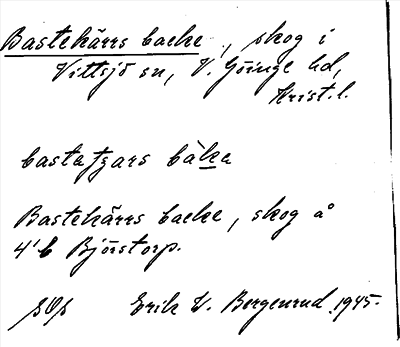 Bastekärrs backe, skog i
Vittsjö sn, V. Göinge hd,
Krist. l.
Bastekärrs backe, skog å
4'6 Bjöstorp.
Erik W. Bergenrud 1945.